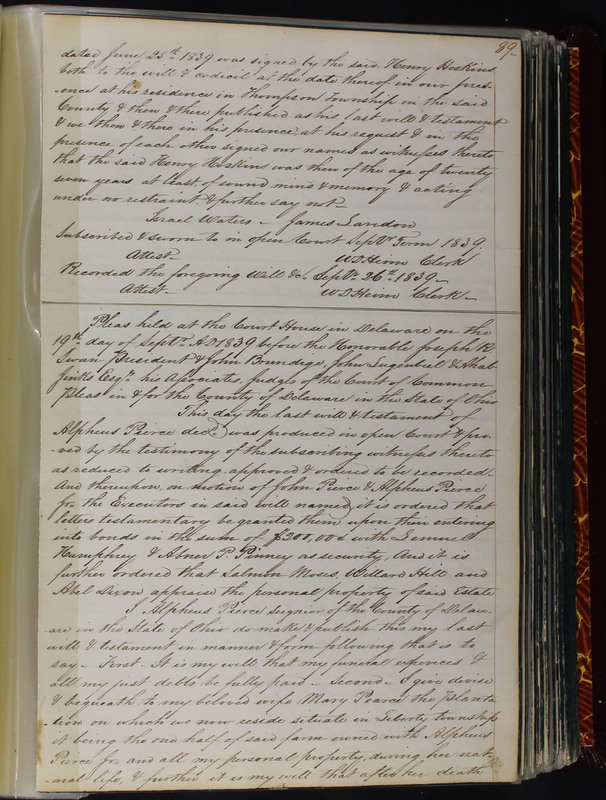 89
dated June 25th 1839 was signed by the said Henry Hoskins
both to the will & codicil at the date thereof in our pres-
-ence at his residence in Thompson Township in the said
County & then & there published as his last will & testament
& we then & there in his presence, at his request & in the
presence of each other signed our names as witnesses thereto
that the said Henry Hoskins was then of the age of twenty
seven years at least, of sound mind & memory & acting
under no restraint, & further say not—
Israel Waters — James Landon
Subscribed & sworn to in open Court Septr. Term 1839
Attest— W D Heim Clerk
Recorded the foregoing Will &c, Septr. 26th 1839—
Attest— W D Heim Clerk—
Pleas held at the Court House in Delaware on the
19th day of Septr. A.D 1839 before the Honorable Joseph R
Swan President & John Brundige, John Lugenbeel & Ahab
Jinks Esqrs. his Associates, judges of the Court of Common
Pleas in & for the County of Delaware in the State of Ohio
This day the last will & testament of
Alpheus Pierce decd. was produced in open Court & pro-
-ved by the testimony of the subscribing witnesses thereto
as reduced to writing, approved & ordered to be recorded.
And thereupon, on motion of John Pierce & Alpheus Pierce
Jr the Executors in said will named, it is ordered that
letters testamentary be granted them upon their entering
into bonds in the sum of $200,00 with Lemuel
Humphrey & Abner P. Pinney as security, And it is
further ordered that Salmon Moses, Willard Hill and
Abel Dixon appraise the personal property of said Estate
I Alpheus Pierce seignior of the County of Delaw-
-are in the State of Ohio do make & publish this my last
will & testament in manner & form following that is to
say— First— It is my will that my funeral expences &
all my just debts be fully paid— Second— I give devise
& bequeath to my beloved wife Mary Pearce the planta-
tion on which we now reside situate in Liberty township
it being the one half of said farm owned with Alpheus
Pierce Jr and all my personal property, during her nat-
-ural life, & further it is my will that after her death